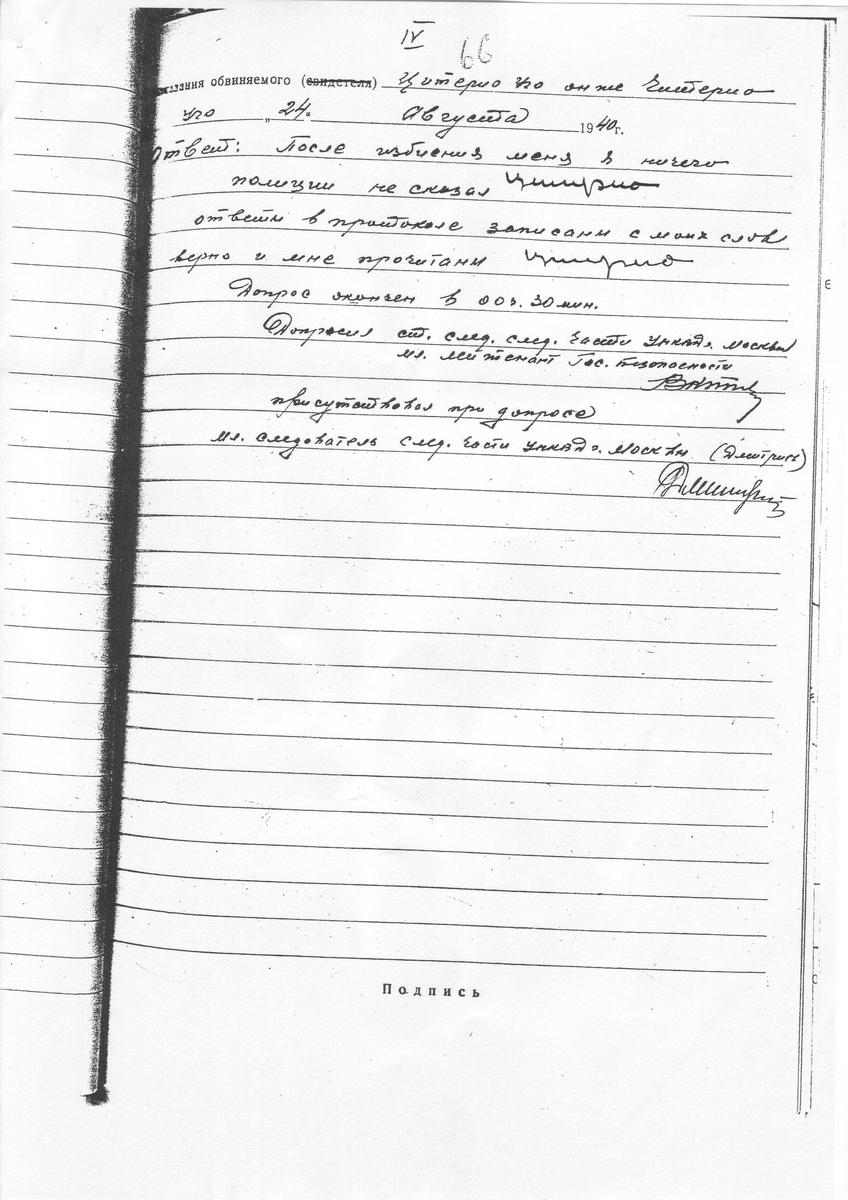 IV
66
казания обвиняемого (свидетеля) Цитерио Уго он же Читерио
Уго „ 24. Августа 1940 г.
Ответ: После избиения меня я ничего
полиции не сказал Цитерио
ответы в протоколе записаны с моих слов
верно и мне прочитаны Цитерио
Допрос окончен в 00 ч. 30 мин.
Допросил ст. след. след. части УНКВД г. Москвы
мл. лейтенант Гос. Безопасности
присутствовал при допросе
мл. следователь след. части УНКВД г. Москвы
Подпись